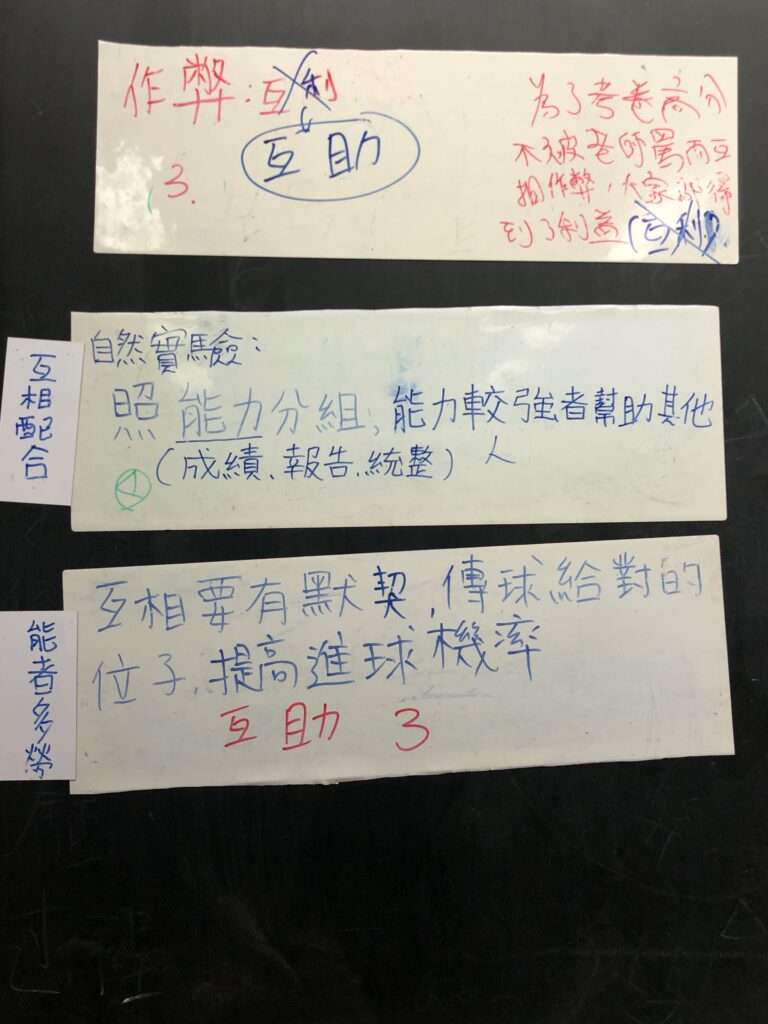 作弊:互利
互助
3.
為了考卷高分
不被老師罵而互
相作弊,大家都得
到了利益(互利)
互相配合
自然實驗:
照能力分組,能力較強者幫助其他
(成績、報告、統整)人
能者多勞
互相要有默契,傳球給對的
位子,提高進球機率
互助 3